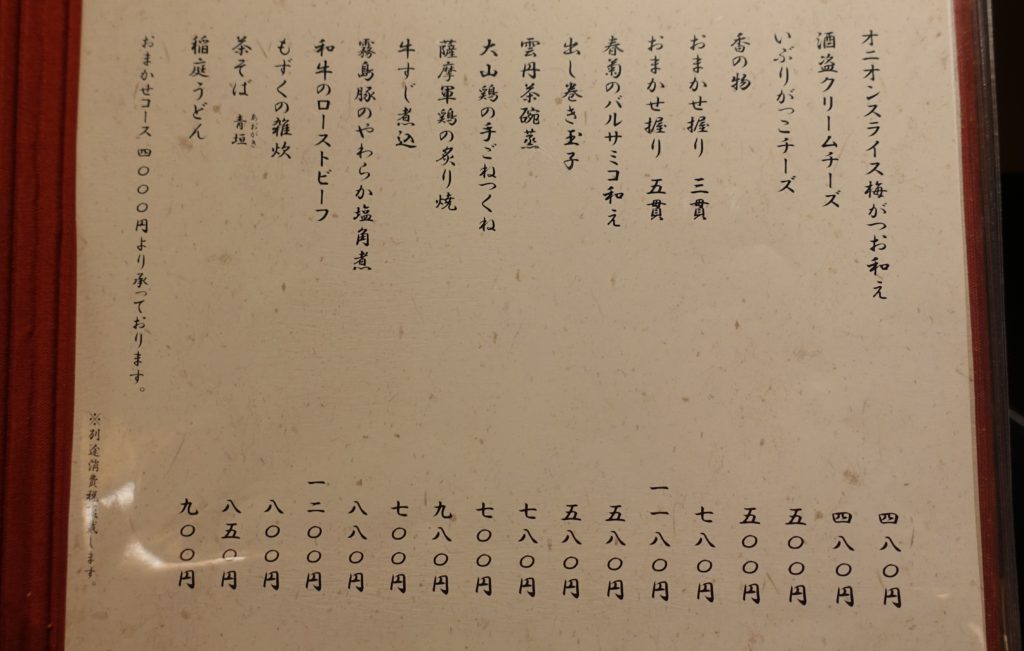 オニオンスライス梅がつお和え 四八〇円
酒盗クリームチーズ 四八〇円
いぶりがっこチーズ 五〇〇円
香の物 五〇〇円
おまかせ握り 三貫 七八〇円
おまかせ握り 五貫 一一八〇円
春菊のバルサミコ和え 五八〇円
出し巻き玉子 五八〇円
雲丹茶碗蒸 七八〇円
大山鶏の手ごねつくね 七〇〇円
薩摩軍鶏の炙り焼 九八〇円
牛すじ煮込 七〇〇円
霧島豚のやわらか塩角煮 八八〇円
和牛のローストビーフ 一二〇〇円
もずくの雑炊 八〇〇円
茶そば 青垣 あおがき 八五〇円
稲庭うどん 九〇〇円
おまかせコース 四〇〇〇円より承っております。
※別途消費税頂戴します。